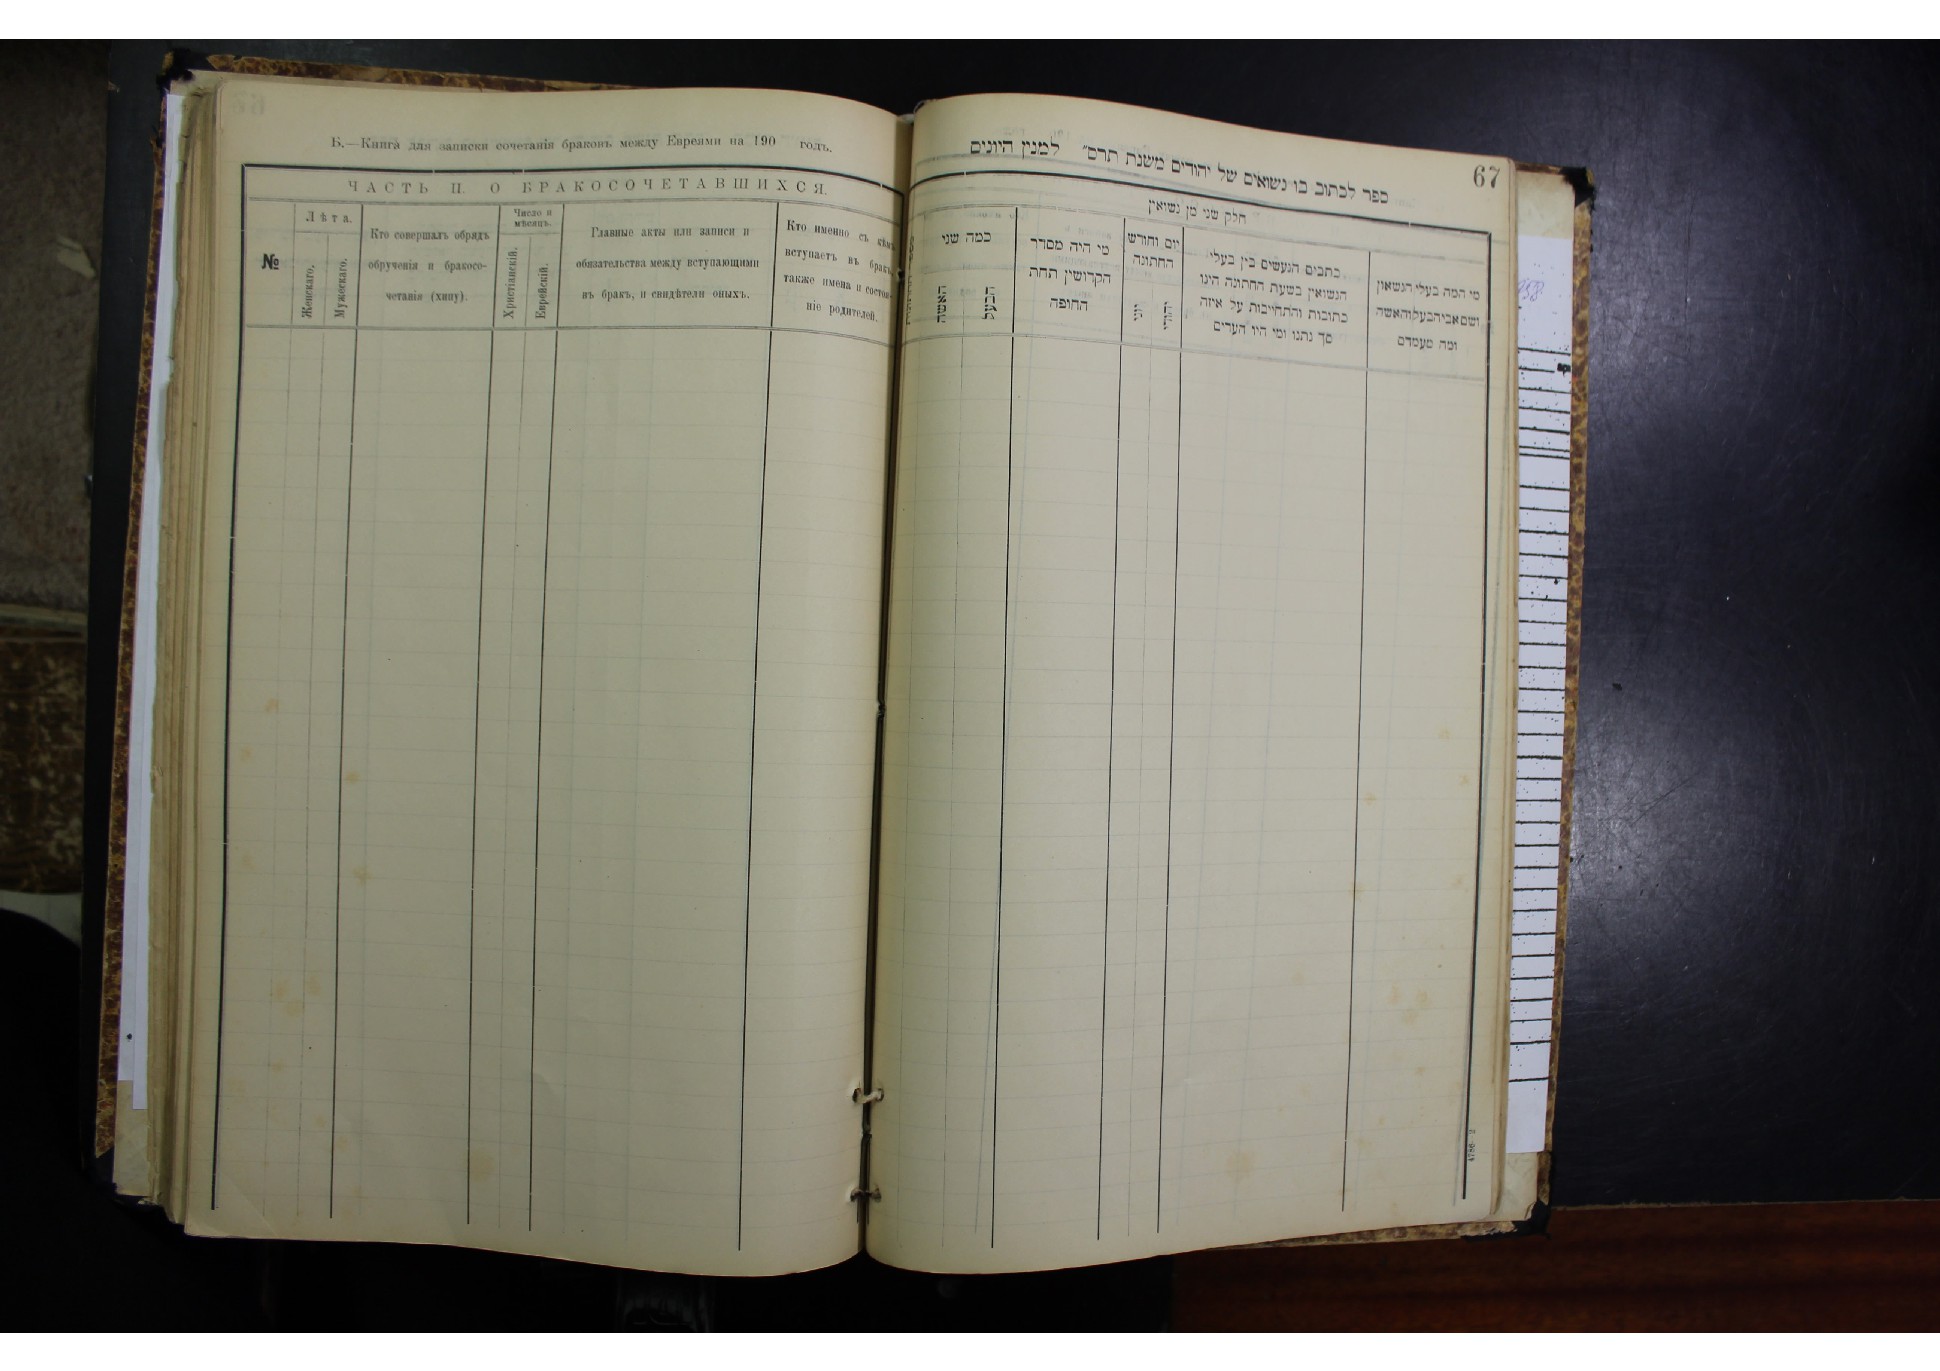 Б.—Книга для записки сочетанія браковъ между Евреями на 190 годъ.
ЧАСТЬ II. О БРАКОСОЧЕТАВШИХСЯ.
№
Лѣта.
Женскаго.
Мужескаго.
Кто совершалъ обрядъ
обрученія и бракосо-
четанія (хипу).
Число и
мѣсяцъ.
Христіанскій.
Еврейскій.
Главные акты или записи и
обязательства между вступающими
въ бракъ, и свидѣтели оныхъ.
Кто именно съ кѣмъ
вступаетъ въ бракъ,
также имена и состоя-
ніе родителей.
67
ספר לכתוב בו נשואים של יהודים משנת תרס״ למנין היונים
חלק שני מן נשואין
כמה שני
האשה
הבעל
מי היה מסדר
הקדושין תחת
החופה
יום וחודש
החתונה
יוני
יהודי
כתבים הנעשים בין בעלי
הנשואין בשעת החתונה הינו
כתובות והתחייבות על איזה
סך נתנו ומי היו העדים
מי המה בעלי הנשואין
ושם אביהבעל והאשה
ומה מעמדם
4786—2